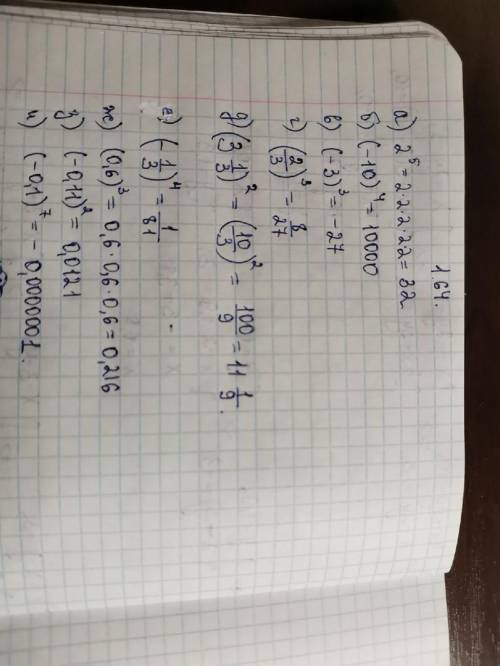 1.64.
а) 2⁵ = 2·2·2·2·2 = 32
б) (-10)⁴ = 10000
в) (-3)³ = -27
г) (2/3)³ = 8/27
д) (3 1/3)² = (10/3)² = 100/9 = 11 1/9.
е) (-1/3)⁴ = 1/81
ж) (0,6)³ = 0,6·0,6·0,6 = 0,216
з) (-0,11)² = 0,0121
и) (-0,1)⁷ = -0,0000001.